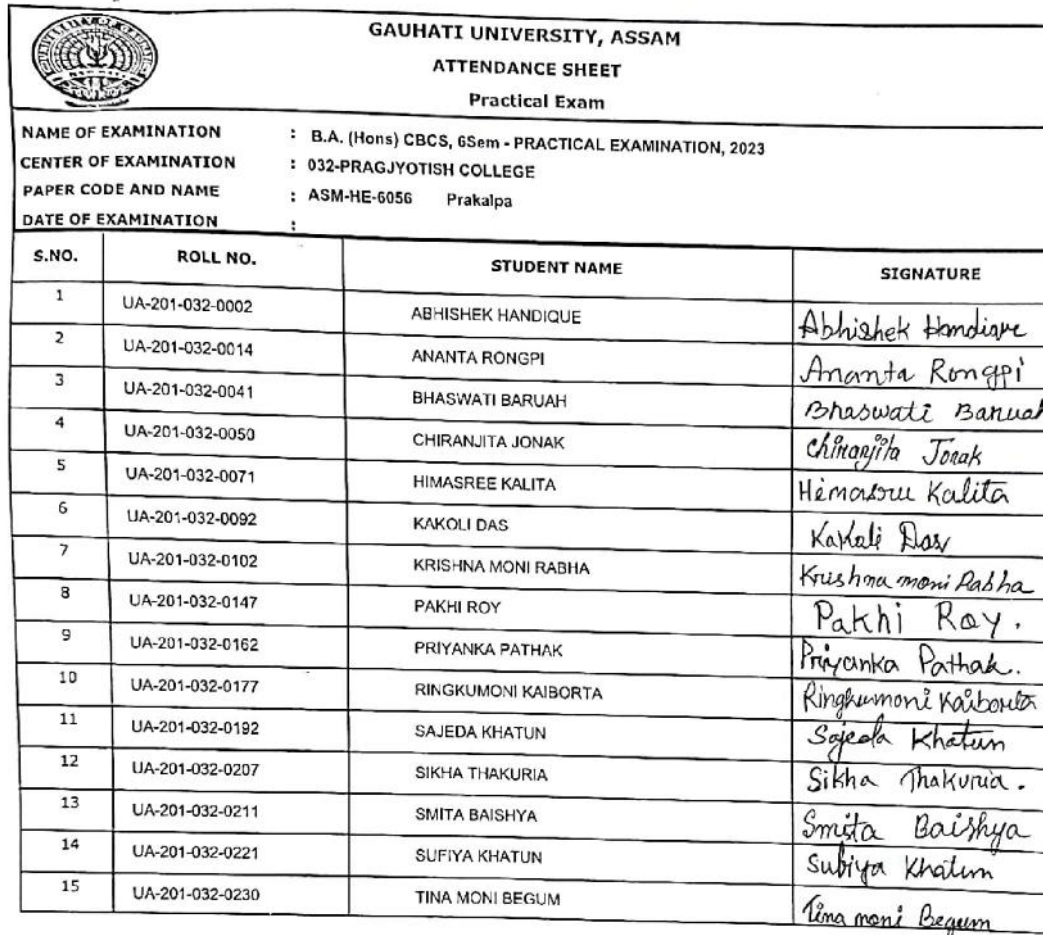 GAUHATI UNIVERSITY, ASSAM
ATTENDANCE SHEET
Practical Exam
NAME OF EXAMINATION : B.A. (Hons) CBCS, 6Sem - PRACTICAL EXAMINATION, 2023
CENTER OF EXAMINATION : 032-PRAGJYOTISH COLLEGE
PAPER CODE AND NAME : ASM-HE-6056 Prakalpa
DATE OF EXAMINATION :
S.NO. ROLL NO. STUDENT NAME SIGNATURE
1 UA-201-032-0002 ABHISHEK HANDIQUE Abhishek Handique
2 UA-201-032-0014 ANANTA RONGPI Ananta Rongpi
3 UA-201-032-0041 BHASWATI BARUAH Bhaswati Baruah
4 UA-201-032-0050 CHIRANJITA JONAK Chiranjita Jonak
5 UA-201-032-0071 HIMASREE KALITA Himasree Kalita
6 UA-201-032-0092 KAKOLI DAS Kakali Das
7 UA-201-032-0102 KRISHNA MONI RABHA Krishna moni Rabha
8 UA-201-032-0147 PAKHI ROY Pakhi Roy.
9 UA-201-032-0162 PRIYANKA PATHAK Priyanka Pathak.
10 UA-201-032-0177 RINGKUMONI KAIBORTA Ringkumoni Kaiborta
11 UA-201-032-0192 SAJEDA KHATUN Sajeda Khatun
12 UA-201-032-0207 SIKHA THAKURIA Sikha Thakuria.
13 UA-201-032-0211 SMITA BAISHYA Smita Baishya
14 UA-201-032-0221 SUFIYA KHATUN Sufiya Khatun
15 UA-201-032-0230 TINA MONI BEGUM Tina moni Begum